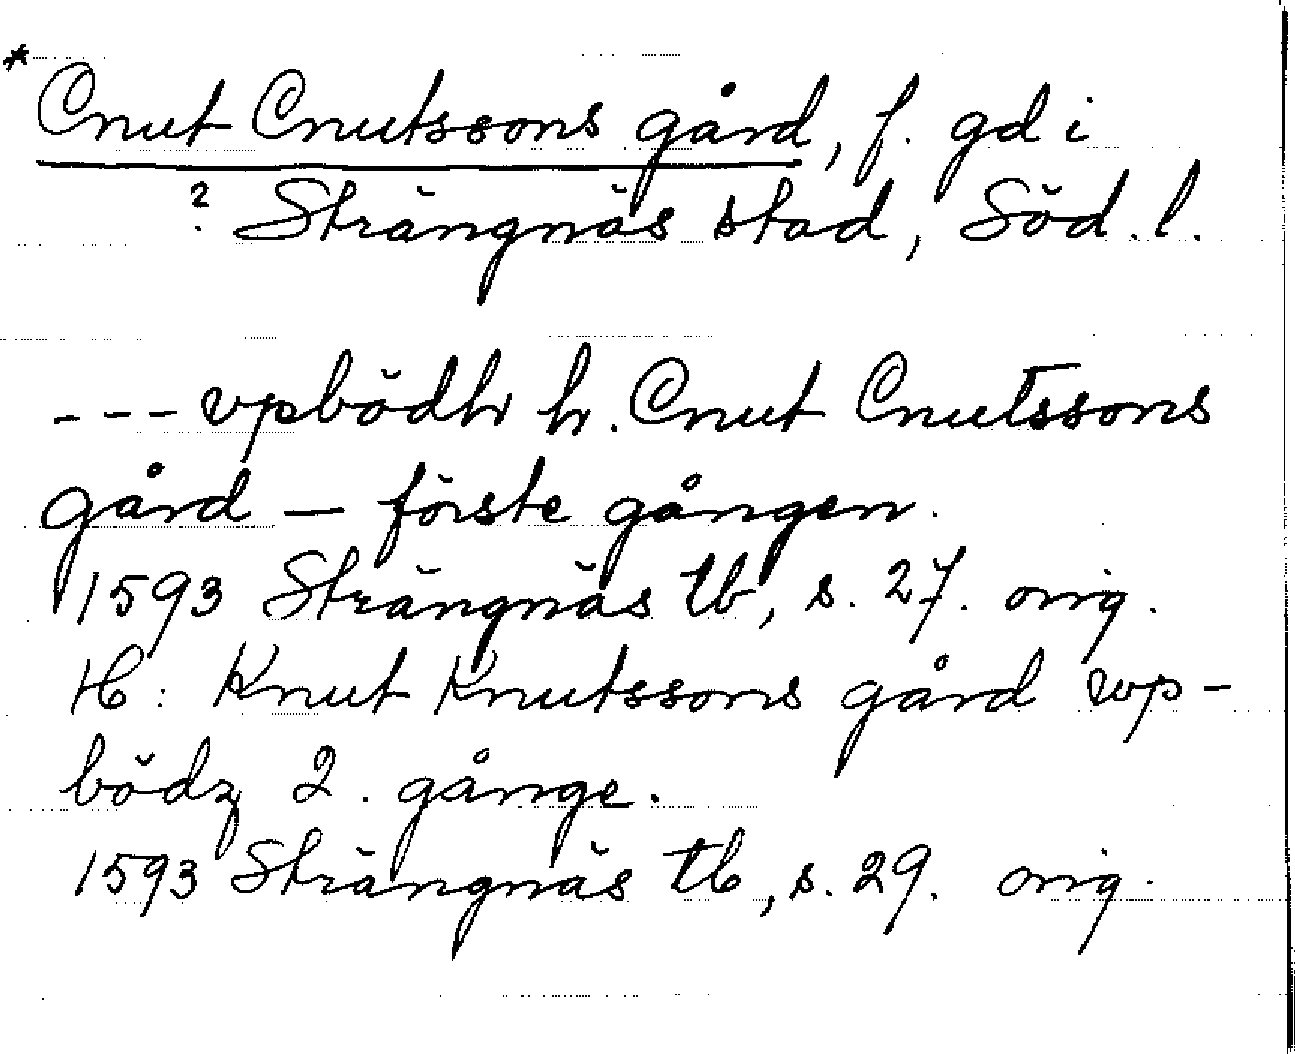 * Cnut Cnutssons gård, f. gd i
? Strängnäs stad, Söd. l.
--- vpbödh h. Cnut Cnutssons
gård — förste gången.
1593 Strängnäs tb, s. 27. orig.
H: Knut Knutssons gård wp-
bödz 2. gånge.
1593 Strängnäs tb, s. 29. orig.